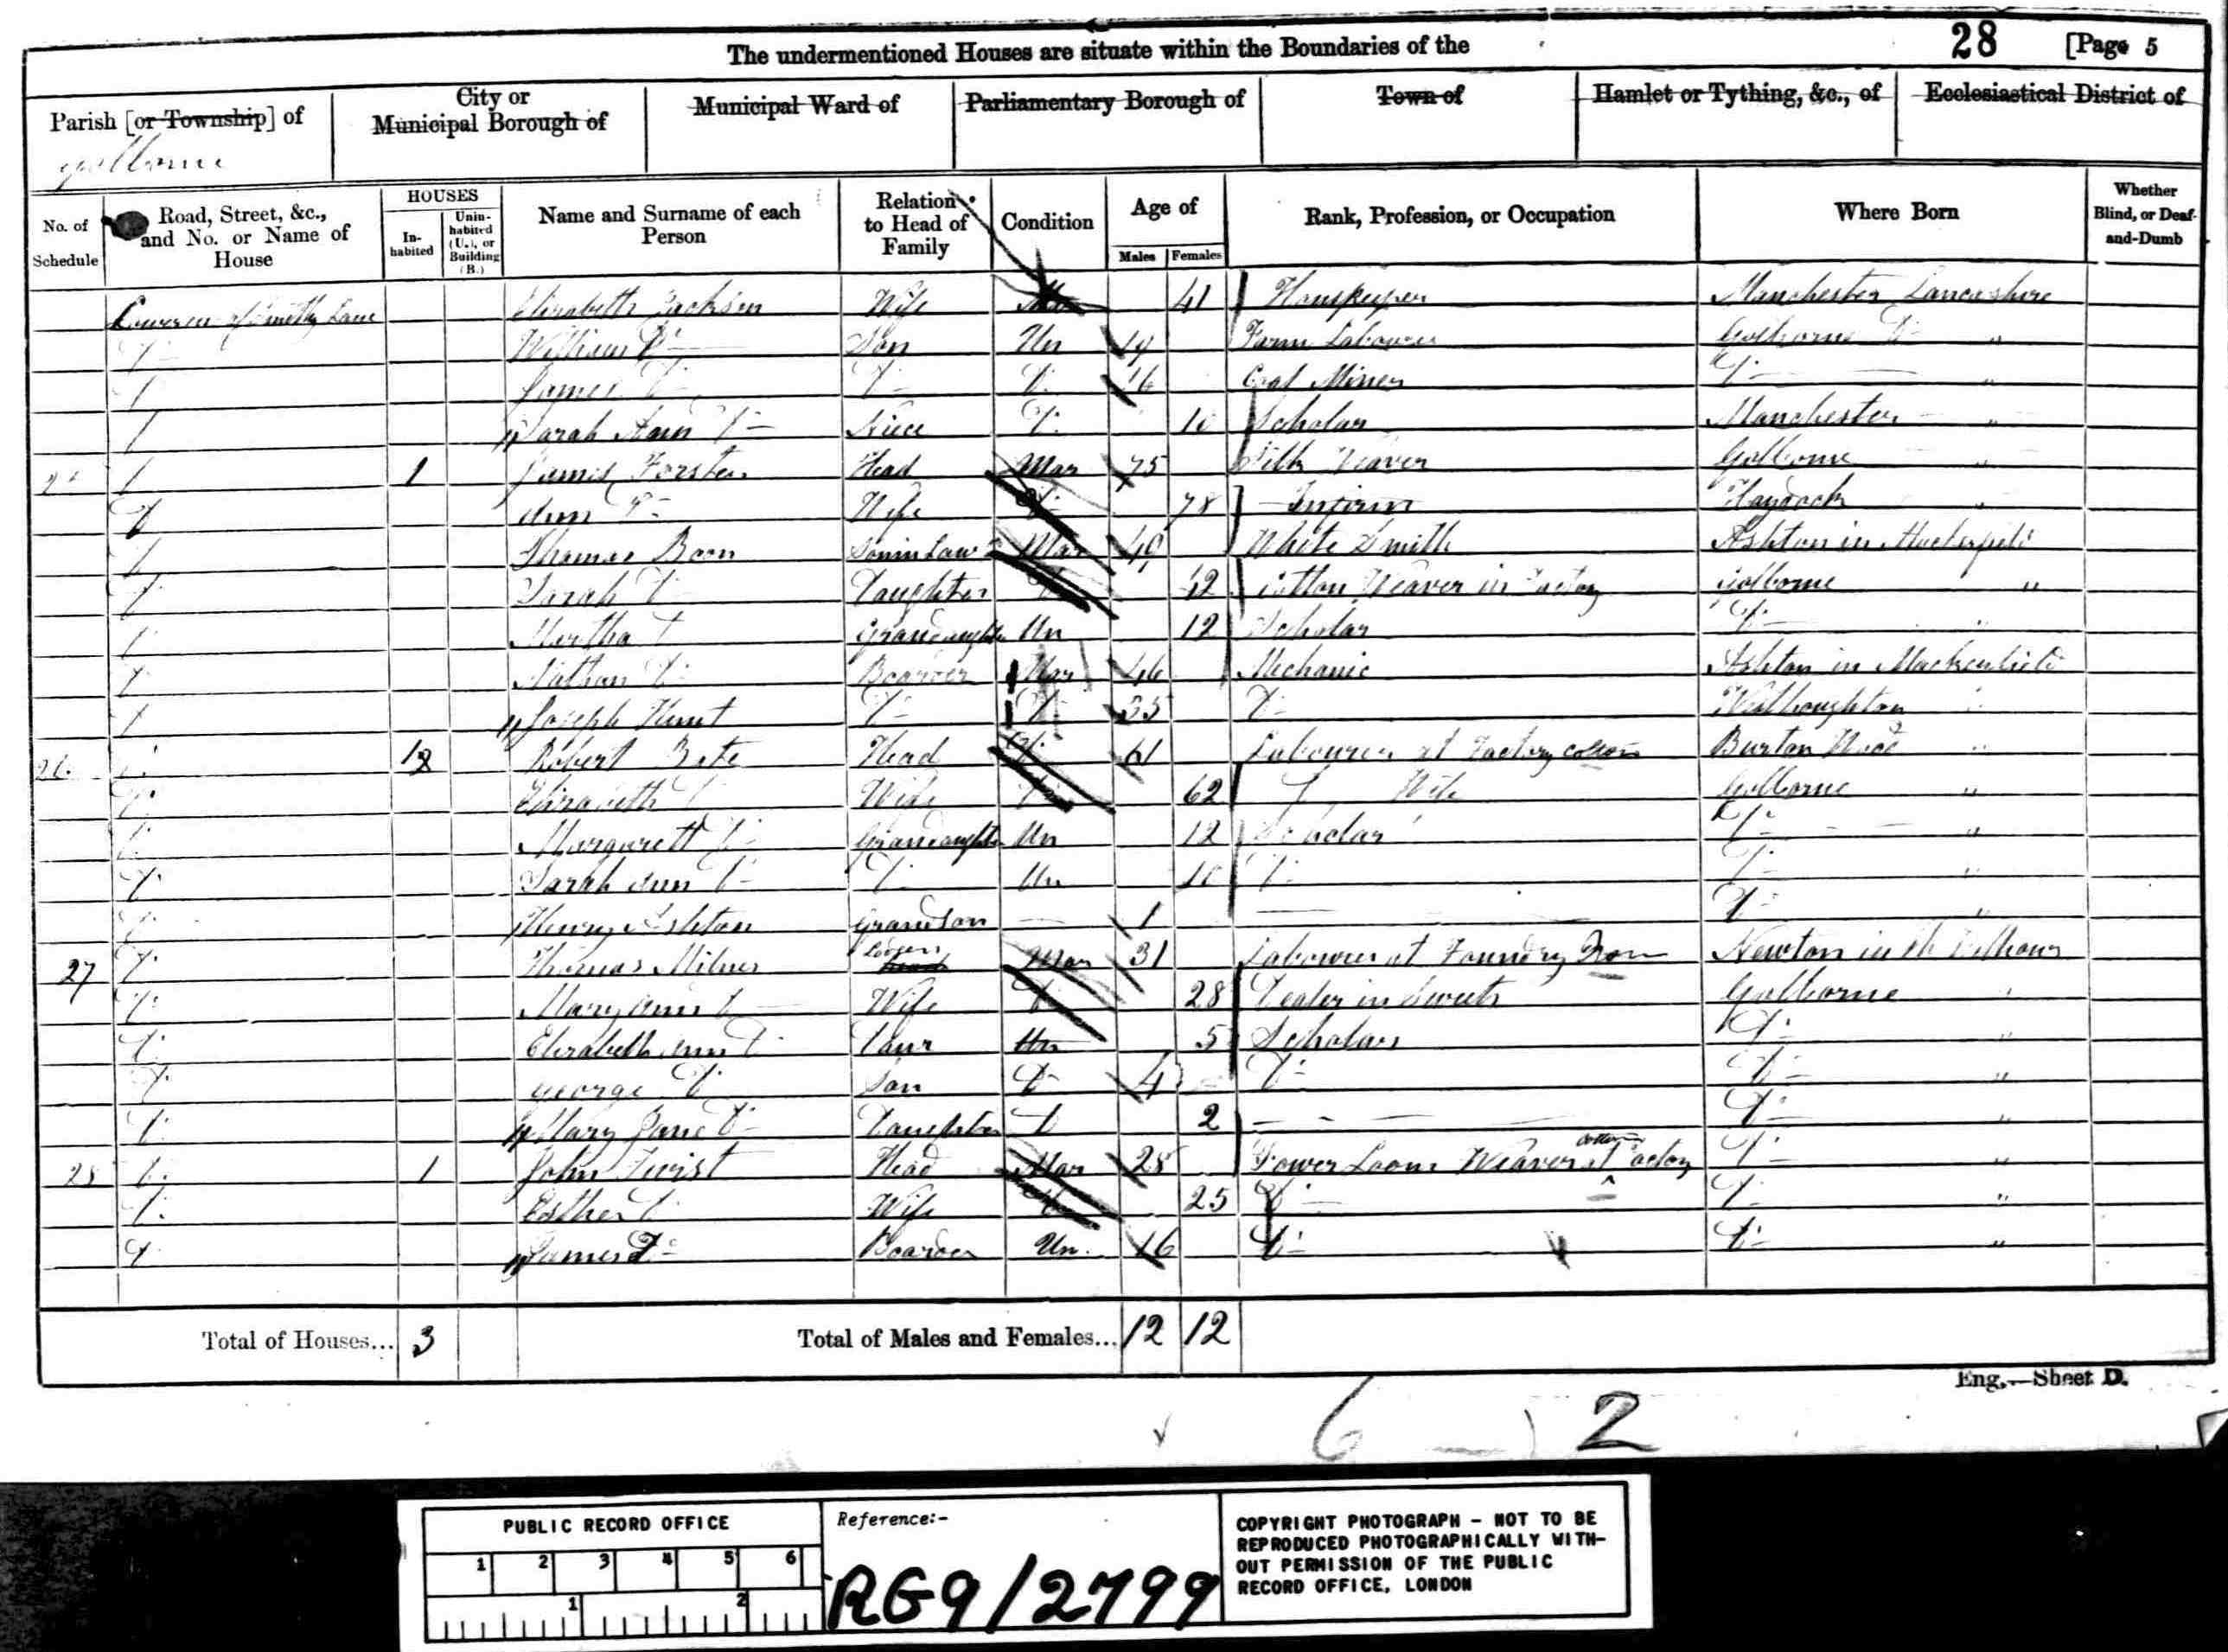 The undermentioned Houses are situate within the Boundaries of the
28 [Page 5
Parish [or Township] of
City or Municipal Borough of
Municipal Ward of
Parliamentary Borough of
Town of
Hamlet or Tything, &c., of
Ecclesiastical District of
Golborne
No. of Schedule
Road, Street, &c., and No. or Name of House
HOUSES
In-habited
Unin-habited (U.), or Building (B.)
Name and Surname of each Person
Relation to Head of Family
Condition
Age of
Males Females
Rank, Profession, or Occupation
Where Born
Whether Blind, or Deaf-and-Dumb
Lane Elizabeth Jackson Wife 41 Manchester Lancashire
Do William Do Son Un 19 Farm Labourer Golborne Do "
Do James Do Do Do 16 Coal Miner Do "
Do Sarah Ann Do Niece Do 10 Scholar Manchester "
Do 1 James Forster Head Mar 75 Silk Weaver Golborne "
Do Ann Do Wife Do 78 Infirm Haydock "
Do Thomas Boon Son in Law Mar 49 White Smith Ashton in
Do Sarah Do Daughter Do 42 Cotton Weaver in Factory Golborne "
Do Martha Do Grandaughter Un 12 Scholar Do "
Do Nathan Do Boarder Mar 46 Mechanic Ashton in
Do Joseph Hunt Do Do 35 Do Westhoughton "
Do Robert Bate Head Do 61 Labourer at Factory cotton Burton Wood "
Do Elizabeth Do Wife Do 62 Wife Golborne "
Do Margarett Do Grandaughter Un 12 Scholar Do "
Do Sarah Ann Do Do Un 10 Do Do "
Do Henry Ashton Grandson — 1 — Do "
27 Do Thomas Milner Lodger Mar 31 Labourer at Foundry Iron Newton in
Do Mary Ann Do Wife Do 28 Dealer in Sweets Golborne "
Do Elizabeth Ann Do Daur Un 5 Scholar Do "
Do George Do Son Do 4 Do Do "
Do Mary Jane Do Daughter Do 2 — Do "
28 Do 1 John Twist Head Mar 28 Power Loom Weaver cotton Factory Do "
Do Esther Do Wife Do 25 Do Do "
Do James Do Boarder Un. 16 Do Do "
Total of Houses... 3 Total of Males and Females... 12 12
Eng.—Sheet D.
6 2
PUBLIC RECORD OFFICE
1 2 3 4 5 6
1 2
Reference:-
RG9/2799
COPYRIGHT PHOTOGRAPH - NOT TO BE
REPRODUCED PHOTOGRAPHICALLY WITH-
OUT PERMISSION OF THE PUBLIC
RECORD OFFICE, LONDON